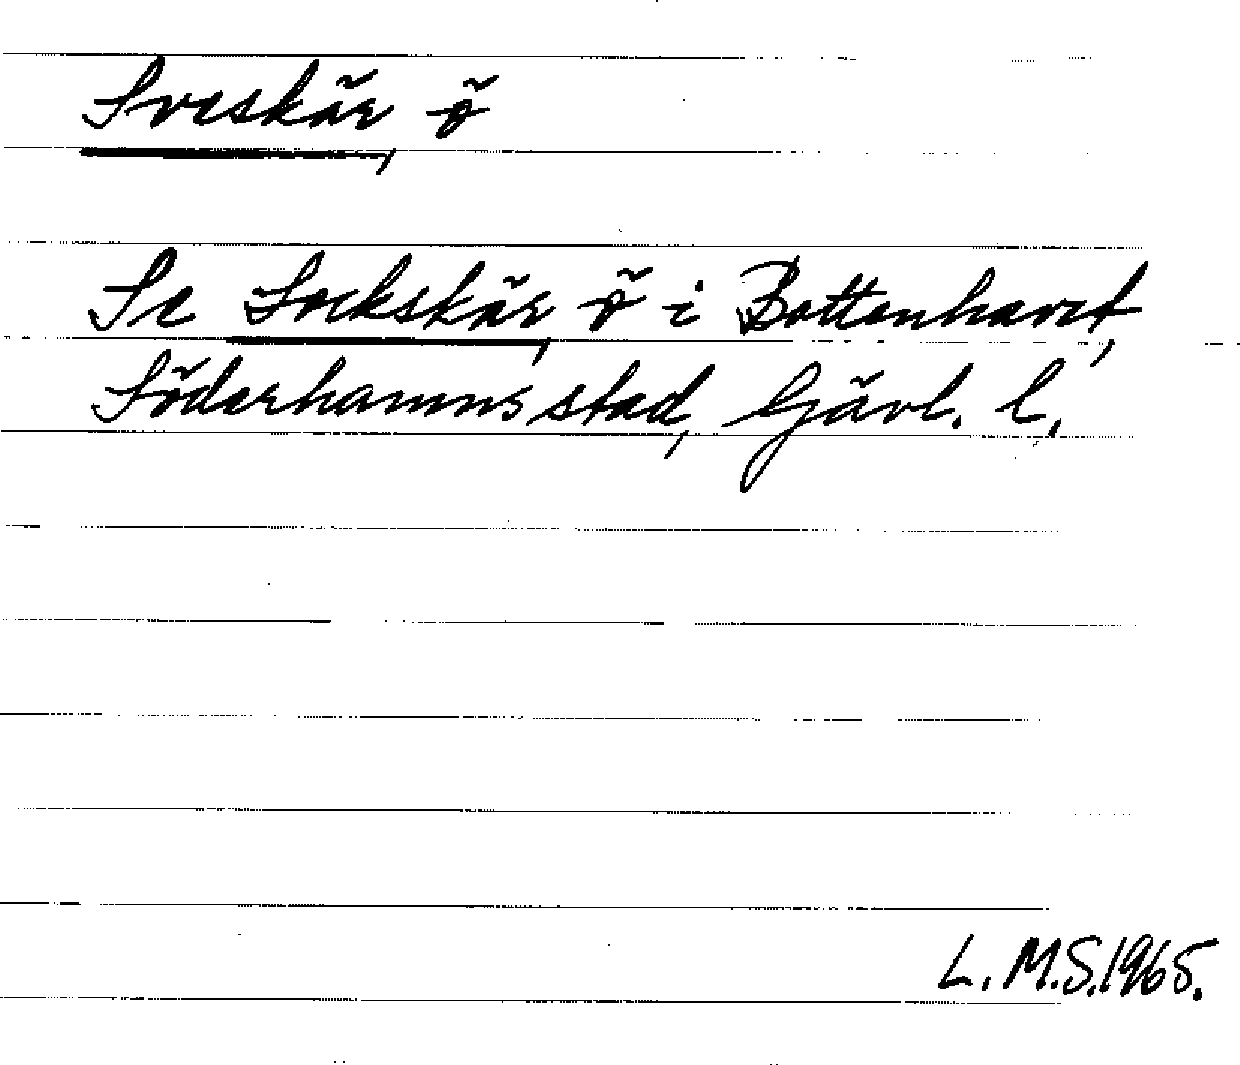 Sveskär, ö
Se Sockskär, ö i Bottenhavet,
Söderhamns stad, Gävl. l.
L. M.S.1965.